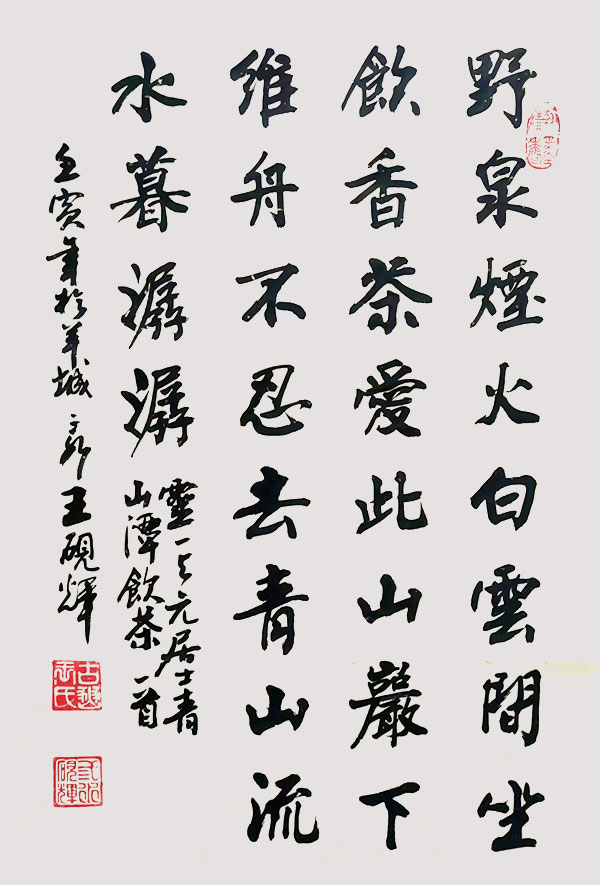 野泉煙火白雲間坐
飲香茶愛此山巖下
維舟不忍去青山流
水暮潺潺
靈一与元居士青
山潭飲茶一首
壬寅年於羊城 王硯輝